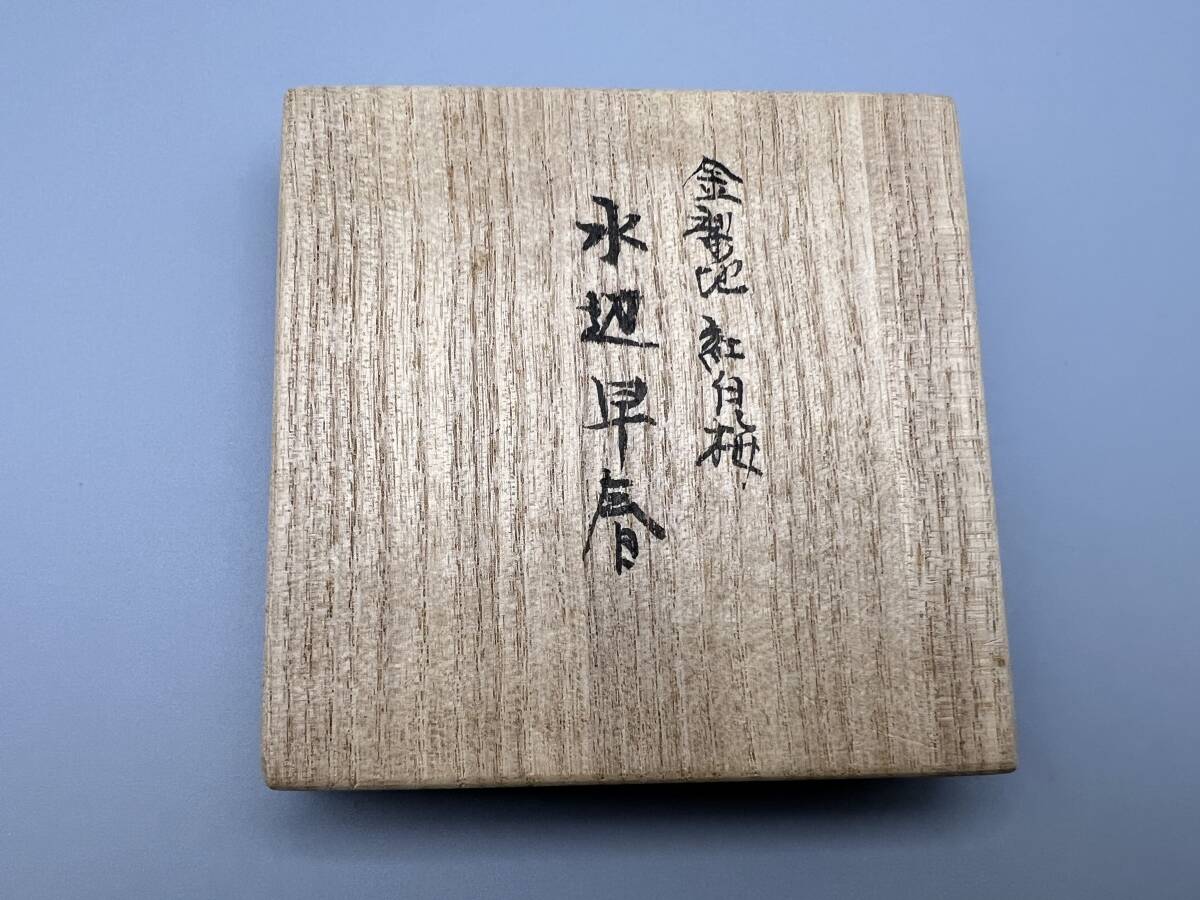 金梨地 紅白梅
水辺早春